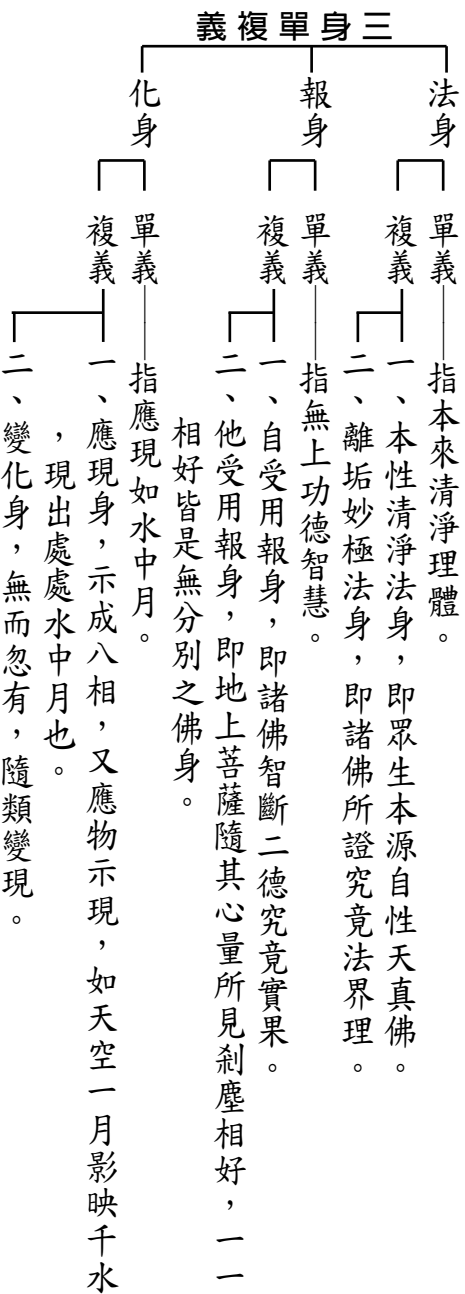 三身單複義
法身
單義——指本來清淨理體。
複義
一、本性清淨法身，即眾生本源自性天真佛。
二、離垢妙極法身，即諸佛所證究竟法界理。
報身
單義——指無上功德智慧。
複義
一、自受用報身，即諸佛智斷二德究竟實果。
二、他受用報身，即地上菩薩隨其心量所見剎塵相好，一一
相好皆是無分別之佛身。
化身
單義——指應現如水中月。
複義
一、應現身，示成八相，又應物示現，如天空一月影映千水
，現出處處水中月也。
二、變化身，無而忽有，隨類變現。